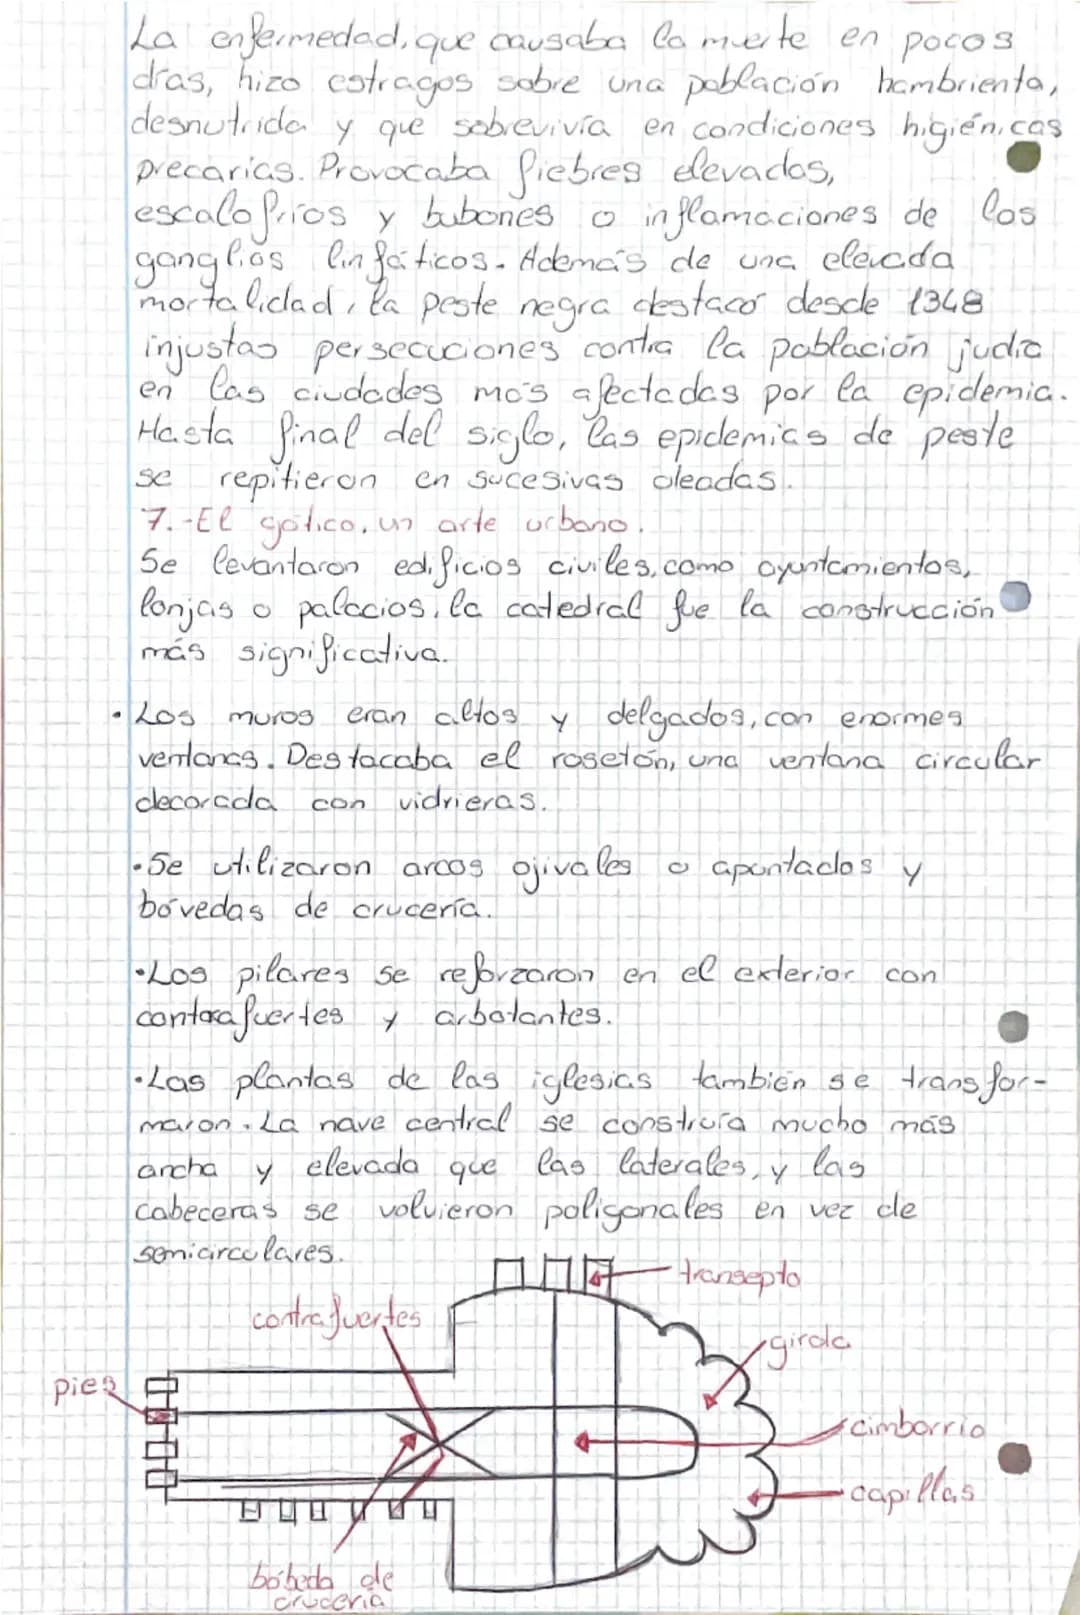 La enfermedad, que causaba la muerte en pocos
días, hizo estragos sobre una población hambrienta,
desnutrida y que sobrevivía en condiciones higiénicas
precarias. Provocaba fiebres elevadas,
escalofríos y bubones o inflamaciones de los
ganglios linfáticos. Además de una elevada
mortalidad, la peste negra destacó desde 1348
injustas persecuciones contra la población judía
en las ciudades más afectadas por la epidemia.
Hasta final del siglo, las epidemias de peste
se repitieron en sucesivas oleadas.
7.-El gótico, un arte urbano.
Se levantaron edificios civiles, como ayuntamientos,
lonjas o palacios, la catedral fue la construcción
más significativa.
·Los muros eran altos y delgados, con enormes
ventanas. Destacaba el rosetón, una ventana circular
decorada con vidrieras.
·Se utilizaron arcos ojivales o apuntados y
bóvedas de crucería.
·Los pilares se reforzaron en el exterior con
contrafuertes y arbotantes.
·Las plantas de las iglesias también se transfor-
maron. La nave central se construía mucho más
ancha y elevada que las laterales, y las
cabeceras se volvieron poligonales en vez de
semicirculares.
transepto
contrafuertes
girola
pies
cimborrio
capillas
bóbeda de
crucería